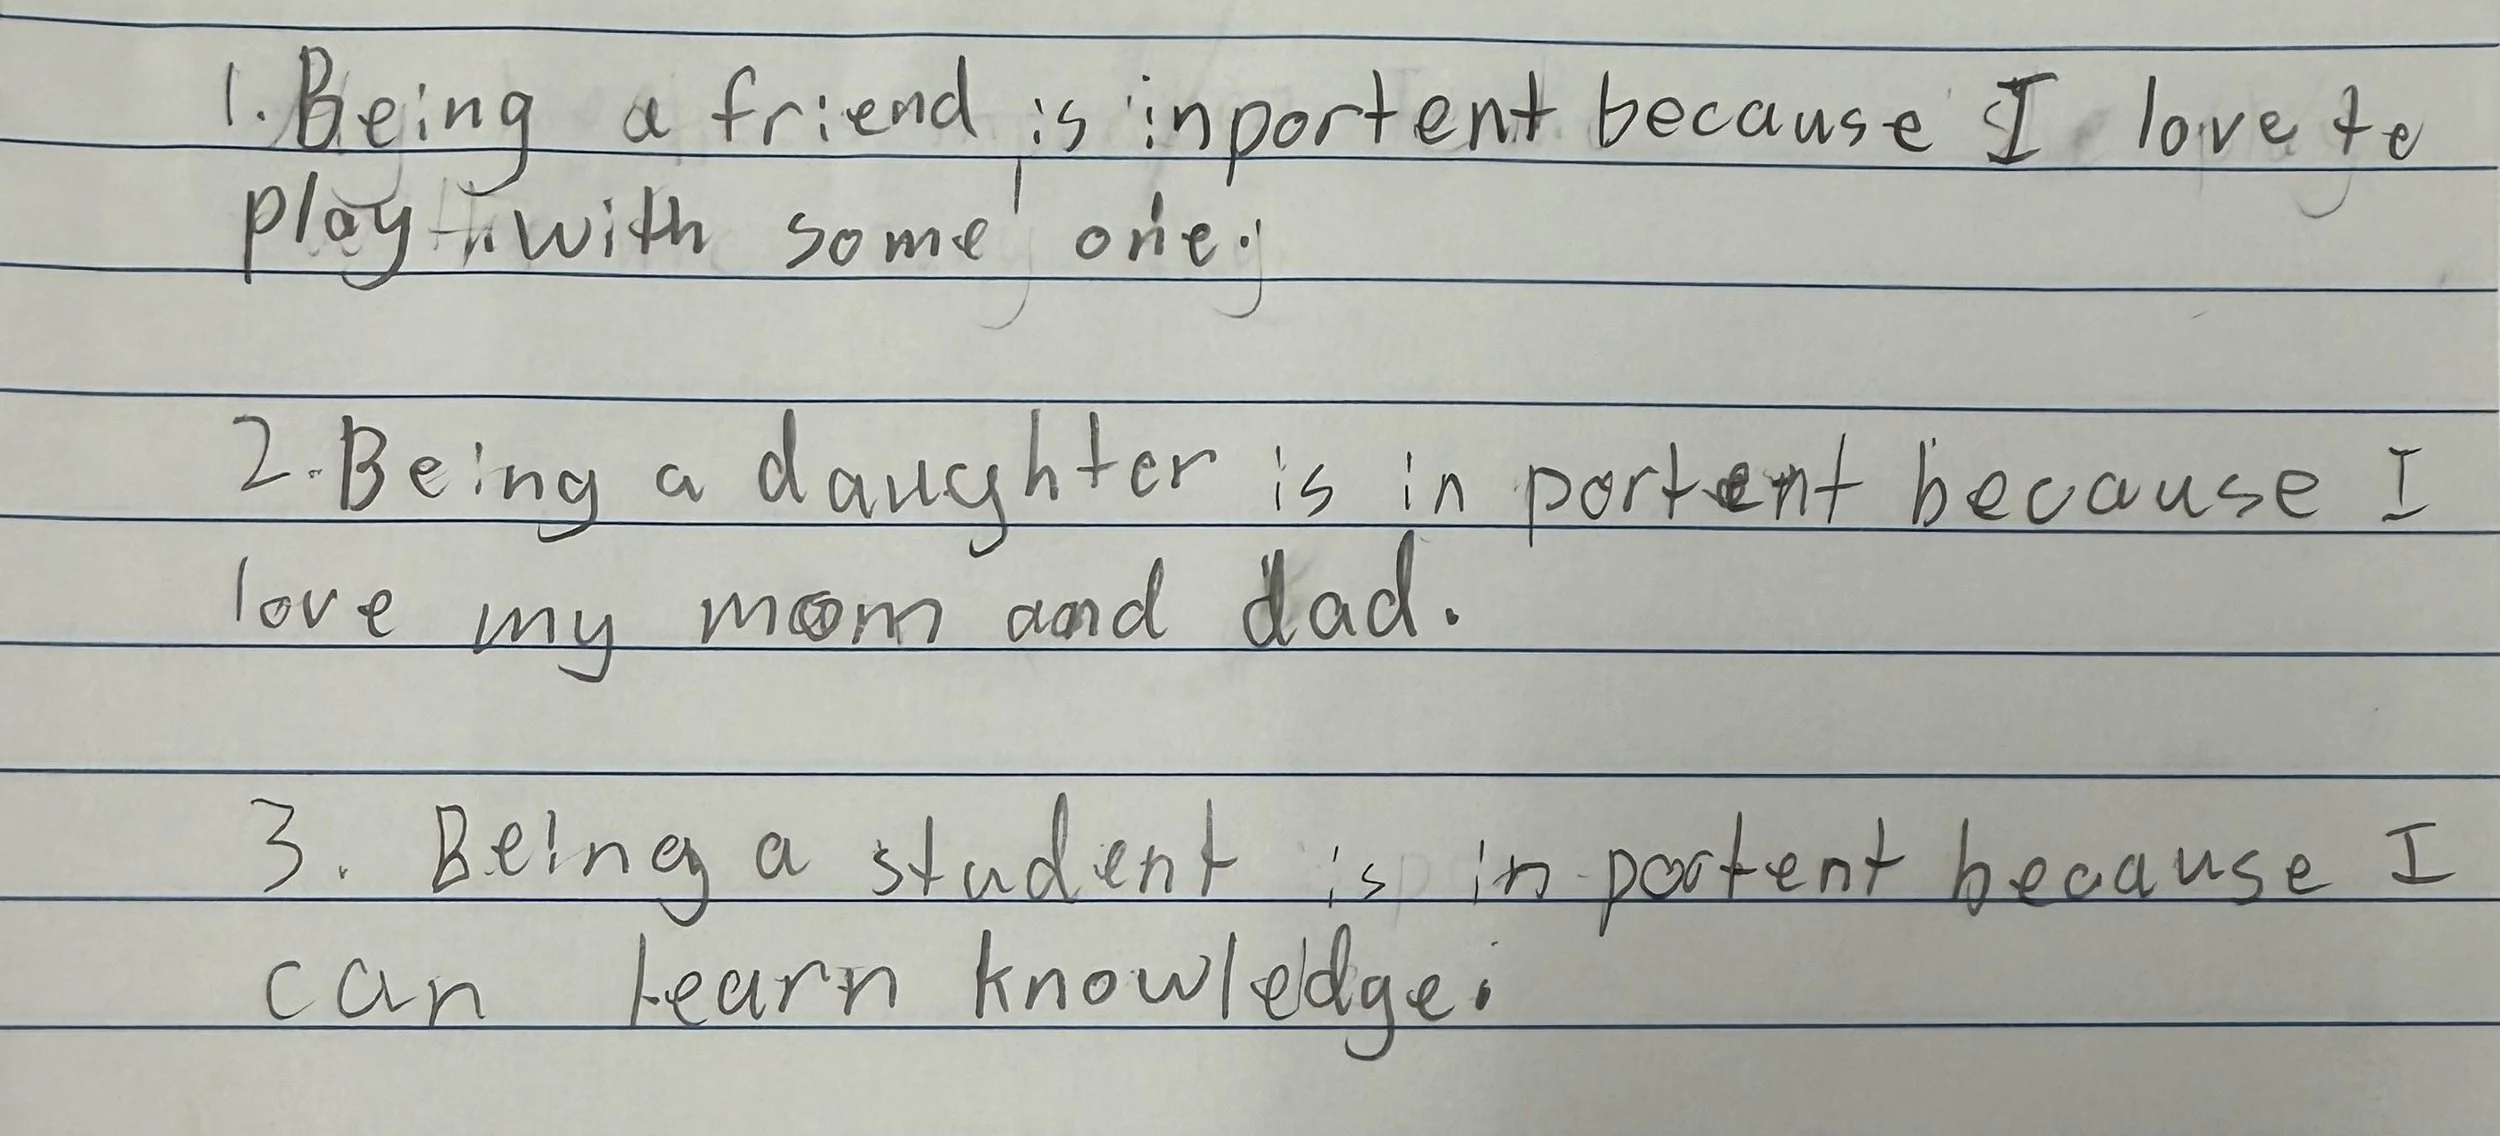 1. Being a friend is inportent because I love te
play with some one.
2. Being a daughter is in portent because I
love my mom and dad.
3. Being a student is in portent because I
can learn knowledge.